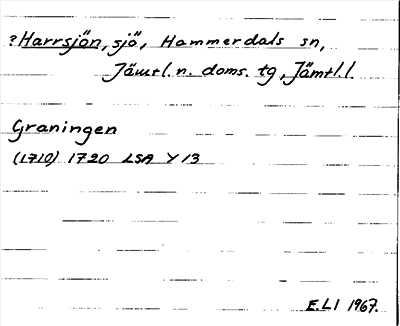 ?Harrsjön, sjö, Hammerdals sn,
Jämtl. n. doms. tg, Jämtl. l.
Graningen
(1710) 1720 LSA Y 13
E.LI 1967.